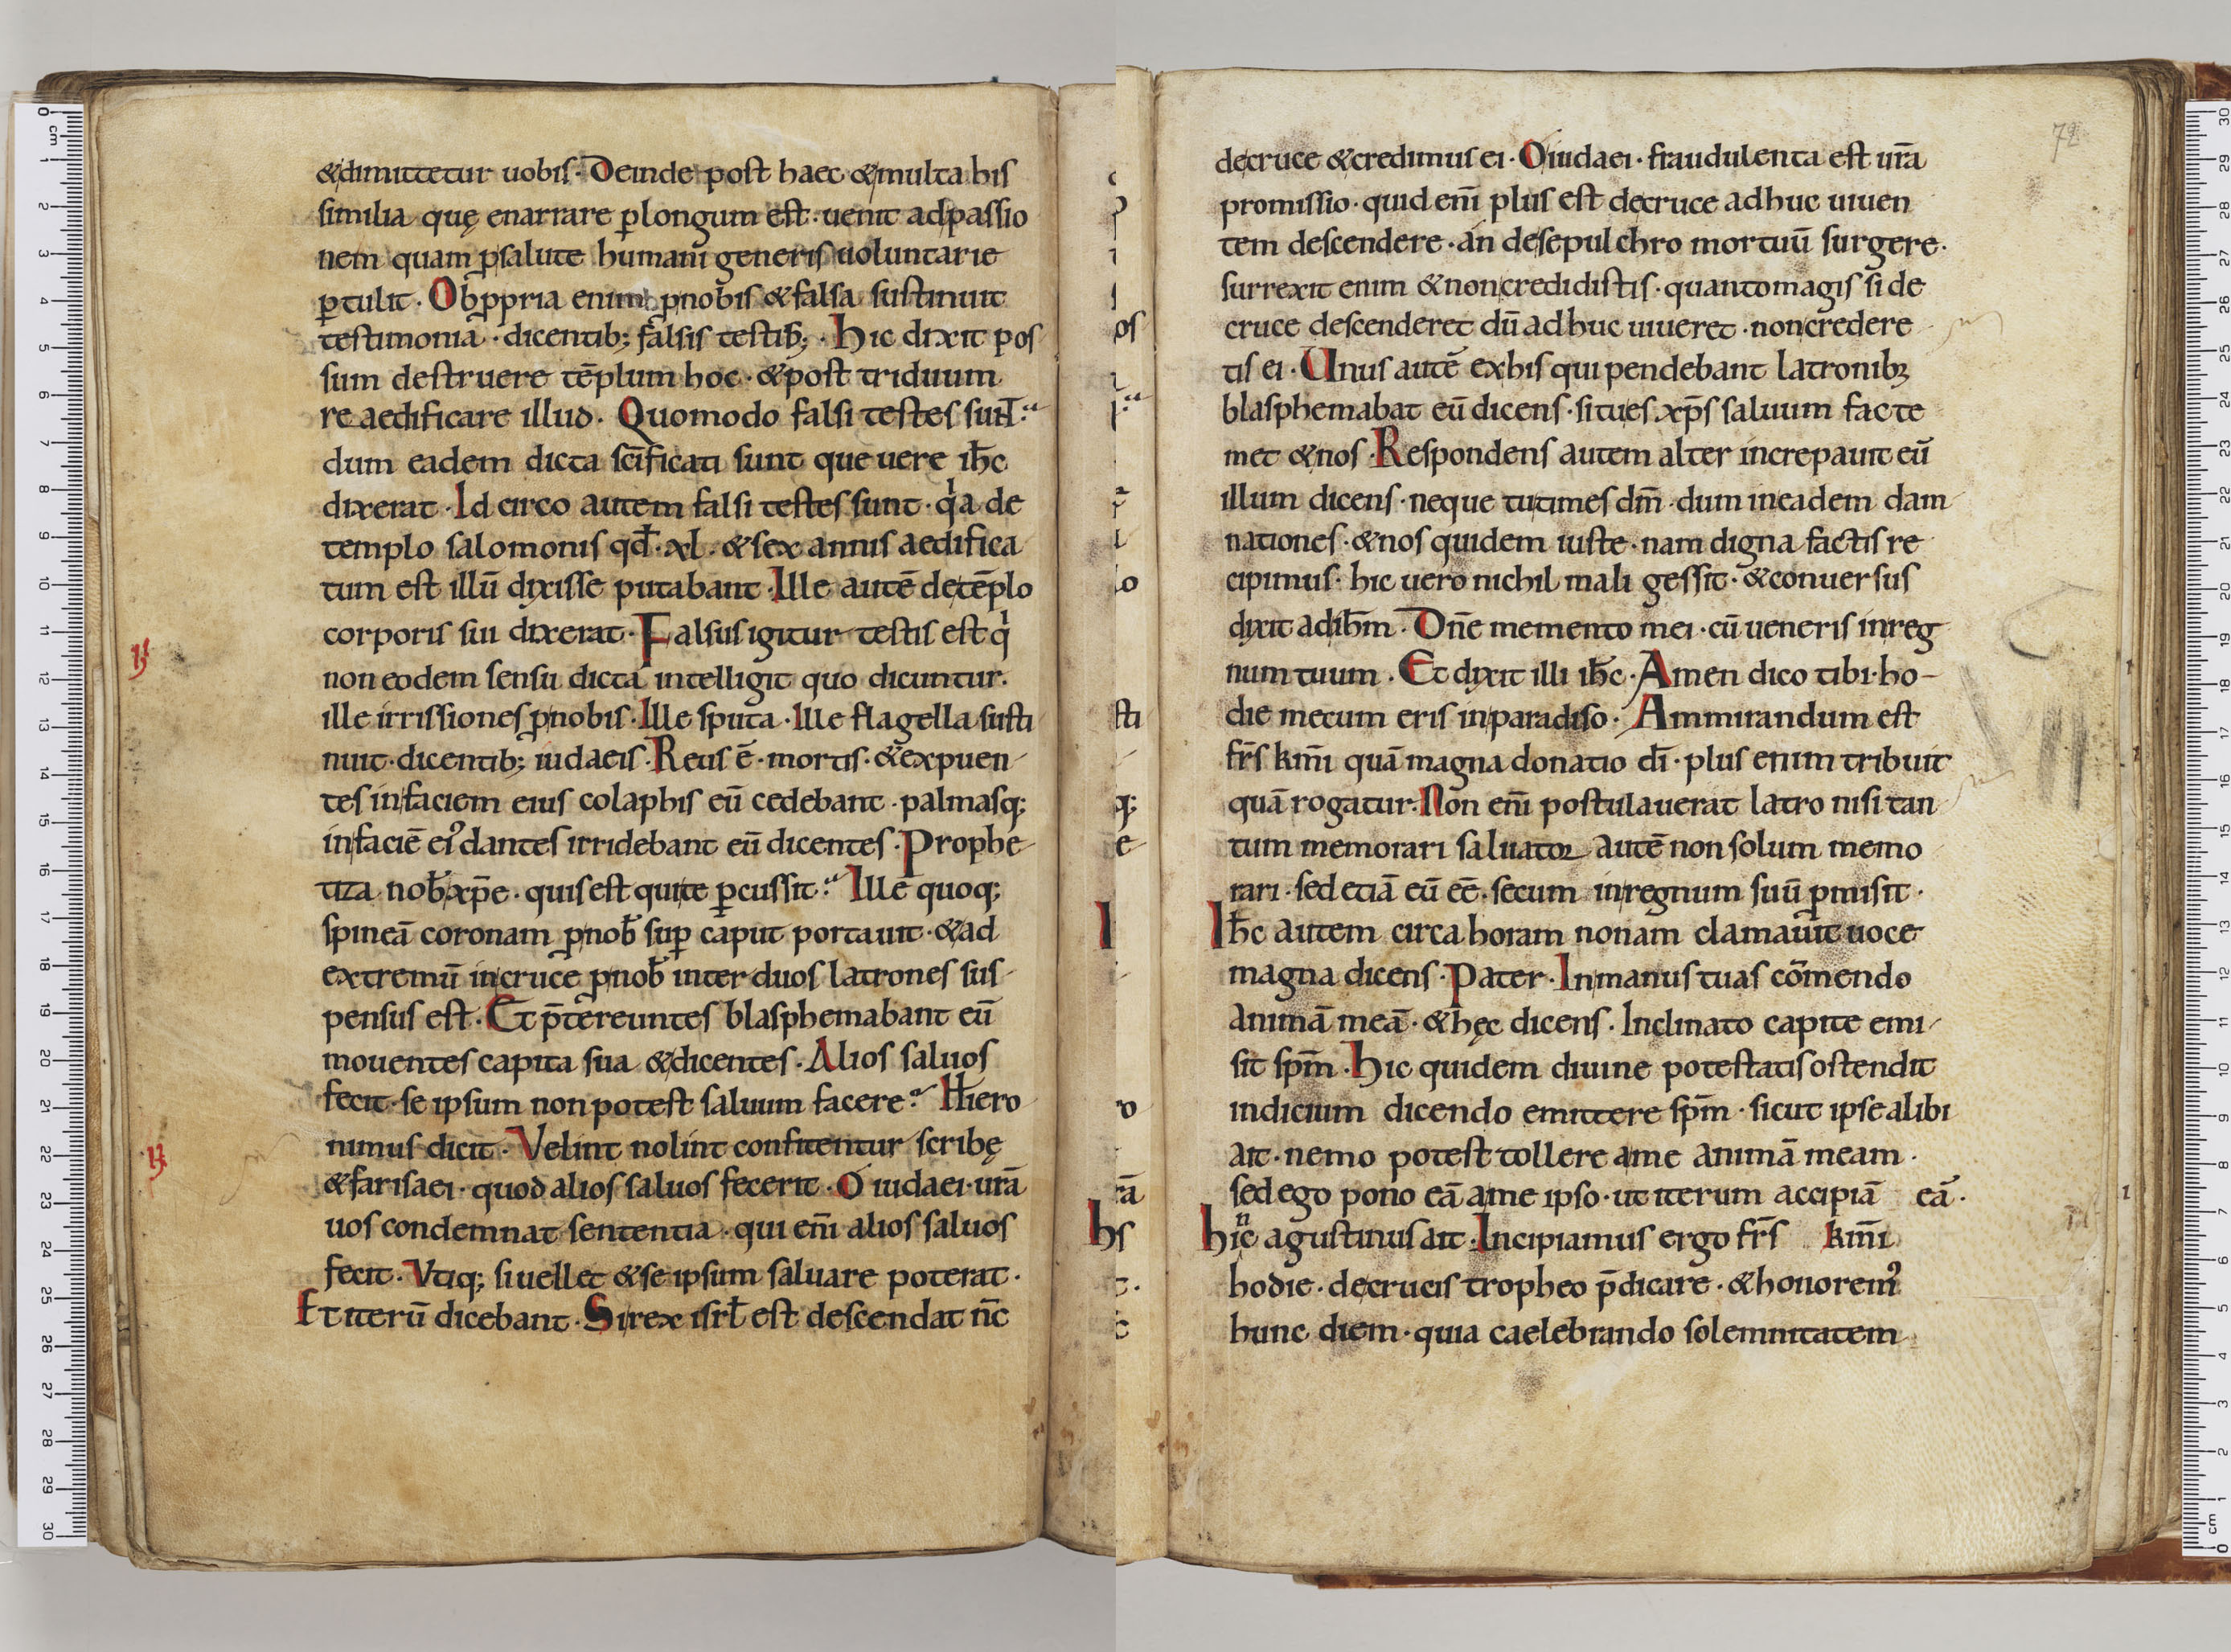 &dimittetur uobis. Deinde post haec &multa his
similia quę enarrare ꝑlongum est. uenit adpassio
nem quam ꝓsalute humani generis uoluntarie
ꝑtulit. Obꝓpria enim ꝓnobis &falsa sustinuit
testimonia. dicentib; falsis testib;. Hic dixit pos
sum destruere tēplum hoc. &post triduum
re aedificare illud. Quomodo falsi testes sunt
dum eadem dicta sc̄ificati sunt que uere ih̄c
dixerat. Id circo autem falsi testes sunt. qa de
templo salomonis qd̄. xl. &sex annis aedifica
tum est illū dixisse putabant. Ille autē detēplo
corporis sui dixerat. Falsus igitur testis est q
non eodem sensu dicta intelligit quo dicuntur.
ille irrissiones ꝓnobis. Ille sputa. Ille flagella susti
nuit. dicentib; iudaeis. Reus ē. mortis. &expuen
tes infaciem eius colaphis eū cedebant. palmasq;
infaciē ei᾽ dantes irridebant eū dicentes. Prophe
tiza nob̄ xp̄e. quis est quite ꝑcussit. Ille quoq;
spineā coronam ꝓnob̄ suꝑ caput portauit. &ad
extremū incruce ꝓnob̄ inter duos latrones sus
pensus est. Et p̄tereuntes blasphemabant eū
mouentes capita sua &dicentes. Alios saluos
fecit. se ipsum non potest saluum facere. Hiero
nimus dicit. Velint nolint confitentur scribę
&farisaei. quod alios saluos fecerit. O iudaei. ur̄a
uos condemnat sententia. qui eni̅ alios saluos
fecit. Vtiq; si uellet &se ipsum saluare poterat.
Et iterū dicebant. Si rex isrl̄ est descendat nc̄
72
decruce &credimus ei. O iudaei. fraudulenta est ur̄a
promissio. quid eni̅ plus est decruce adhuc uiuen
tem descendere. an desepulchro mortuū surgere.
surrexit enim &noncredidistis. quantomagis si de
cruce descenderet dū adhuc uiueret. noncredere
tis ei. Unus autē exhis qui pendebant latronibꝫ
blasphemabat eū dicens. situes xp̄s saluum fac te
met &nos. Respondens autem alter increpauit eū
illum dicens. neque tutimes dm̄. dum ineadem dam
nationes. &nos quidem iuste. nam digna factis re
cipimus. hic uero nichil mali gessit. &conuersus
dixit adih̄m. Dn̄e memento mei. cū ueneris inreg
num tuum. Et dixit illi ih̄c. Amen dico tibi. ho-
die mecum eris inparadiso. Ammirandum est
fr̄s km̄i quā magna donatio di̅. plus enim tribuit
quā rogatur. Non eni̅ postulauerat latro nisi tan
tum memorari saluator autē non solum memo
rari. sed etiā eū eē. secum inregnum suū ꝓmisit.
Ih̄c autem circa horam nonam clamauit uoce
magna dicens. Pater. Inmanus tuas cōmendo
animā meā. &hęc dicens. Inclinato capite emi
sit sp̄m. Hic quidem diuine potestatis ostendit
indicium dicendo emittere sp̄m. sicut ipse alibi
ait. nemo potest tollere ame animā meam.
sed ego pono eā ame ipso. ut iterum accipiā eā.
hīc agustinus ait. Incipiamus ergo fr̄s km̄i
hodie. decrucis tropheo p̄dicare. &honorem᾽
hunc diem. quia caelebrando solemnitatem